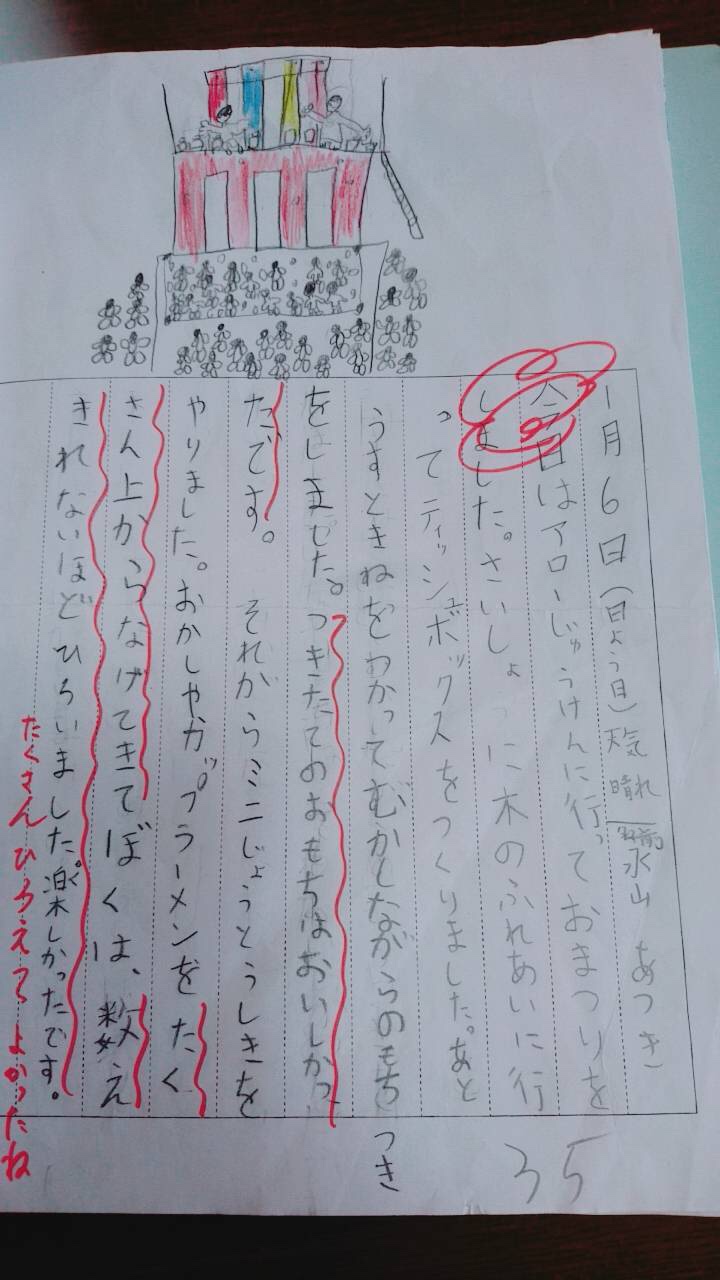 1月6日(日よう日)天気 晴れ 名前 永山 あつき
今日はアローじゅうけんに行っておまつりを
しました。さいしょに木のふれあいに行
ってティッシュボックスをつくりました。あと
うすときねをつかってむかしながらのもちつき
をしました。つきたてのおもちはおいしかっ
たです。 それからミニじょうとうしきを
やりました。おかしやカップラーメンをたく
さん上からなげてきてぼくは、数え
きれないほどひろいました。楽しかったです。
たくさんひろえてよかったね
35